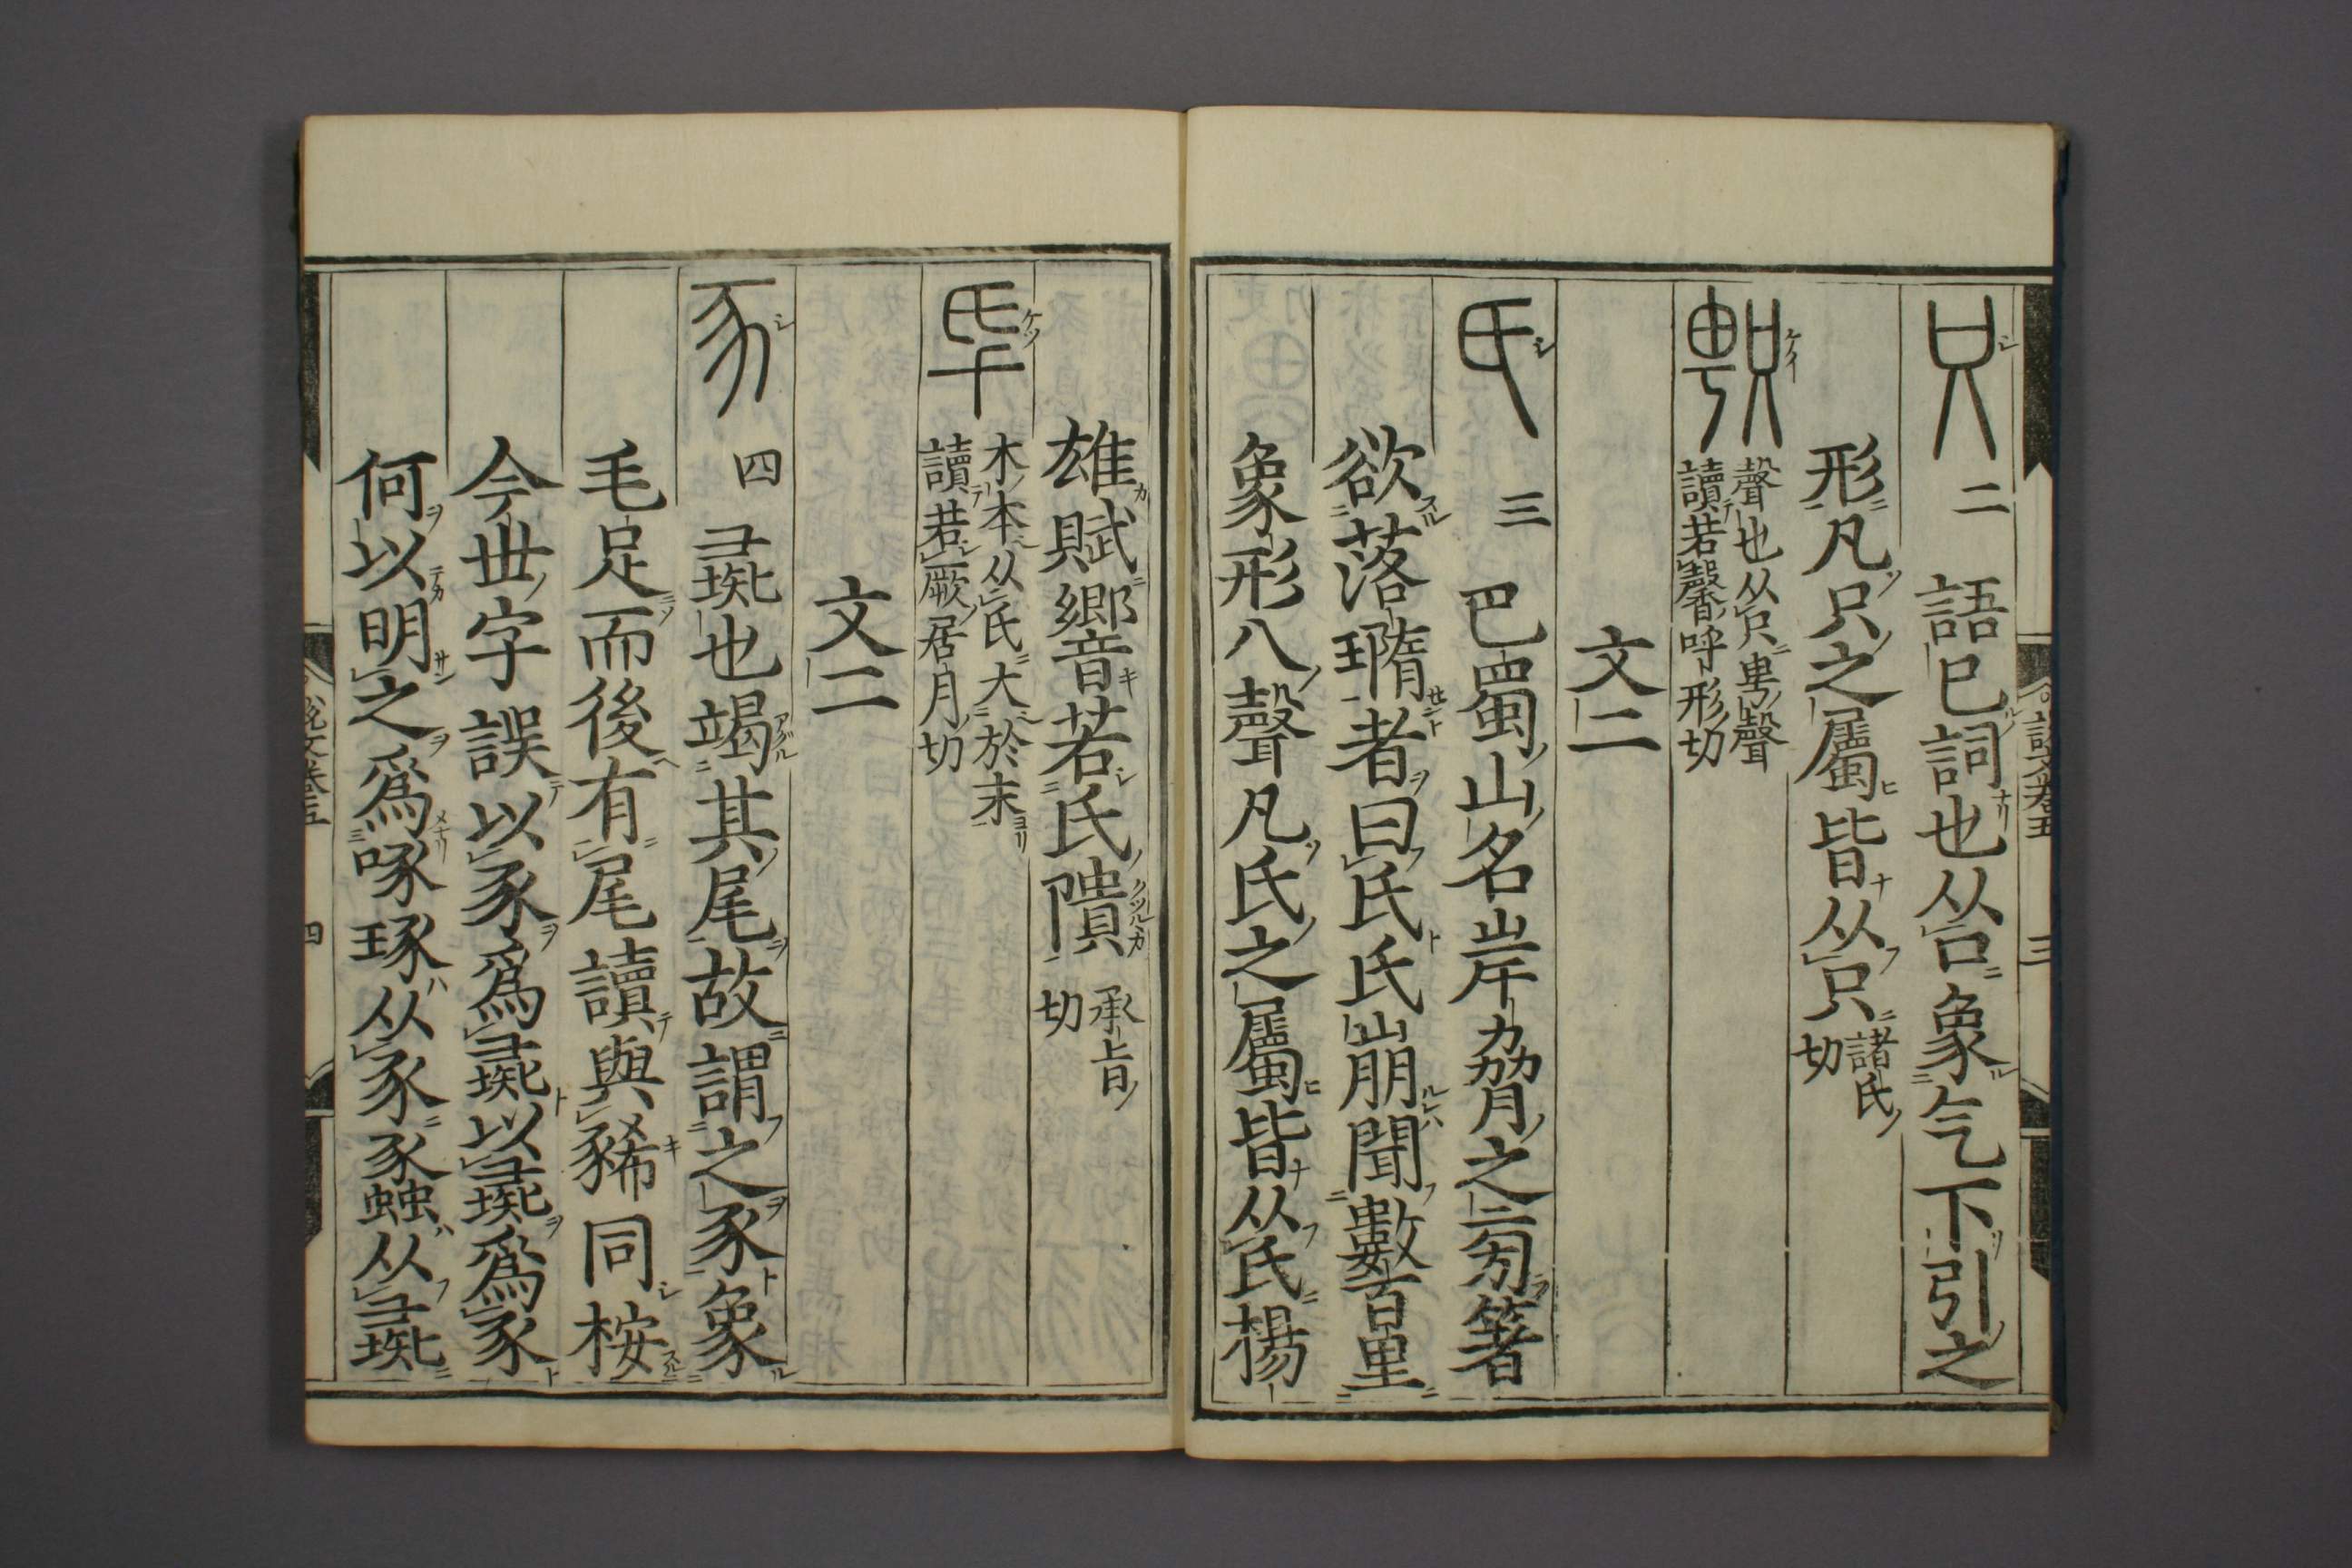 說文卷五 三
只 二 語已詞也从口象气下引之
形凡只之屬皆从只 諸氏
切
𠷎 聲也从只甹聲
讀若馨呼形切
文二
氏 三 巴蜀山名岸脅之㫄箸
欲落㙐者曰氏氏崩聞數百里
象形八聲凡氏之屬皆从氏楊
雄賦響若氏隤 承旨
切
氒 木本从氏大於末
讀若厥居月切
文二
豕 四 彘也竭其尾故謂之豕象
毛足而後有尾讀與豨同桉
今世字誤以豕爲彘以彘爲豕
何以明之爲啄琢从豕蟸从彘
說文卷五 四